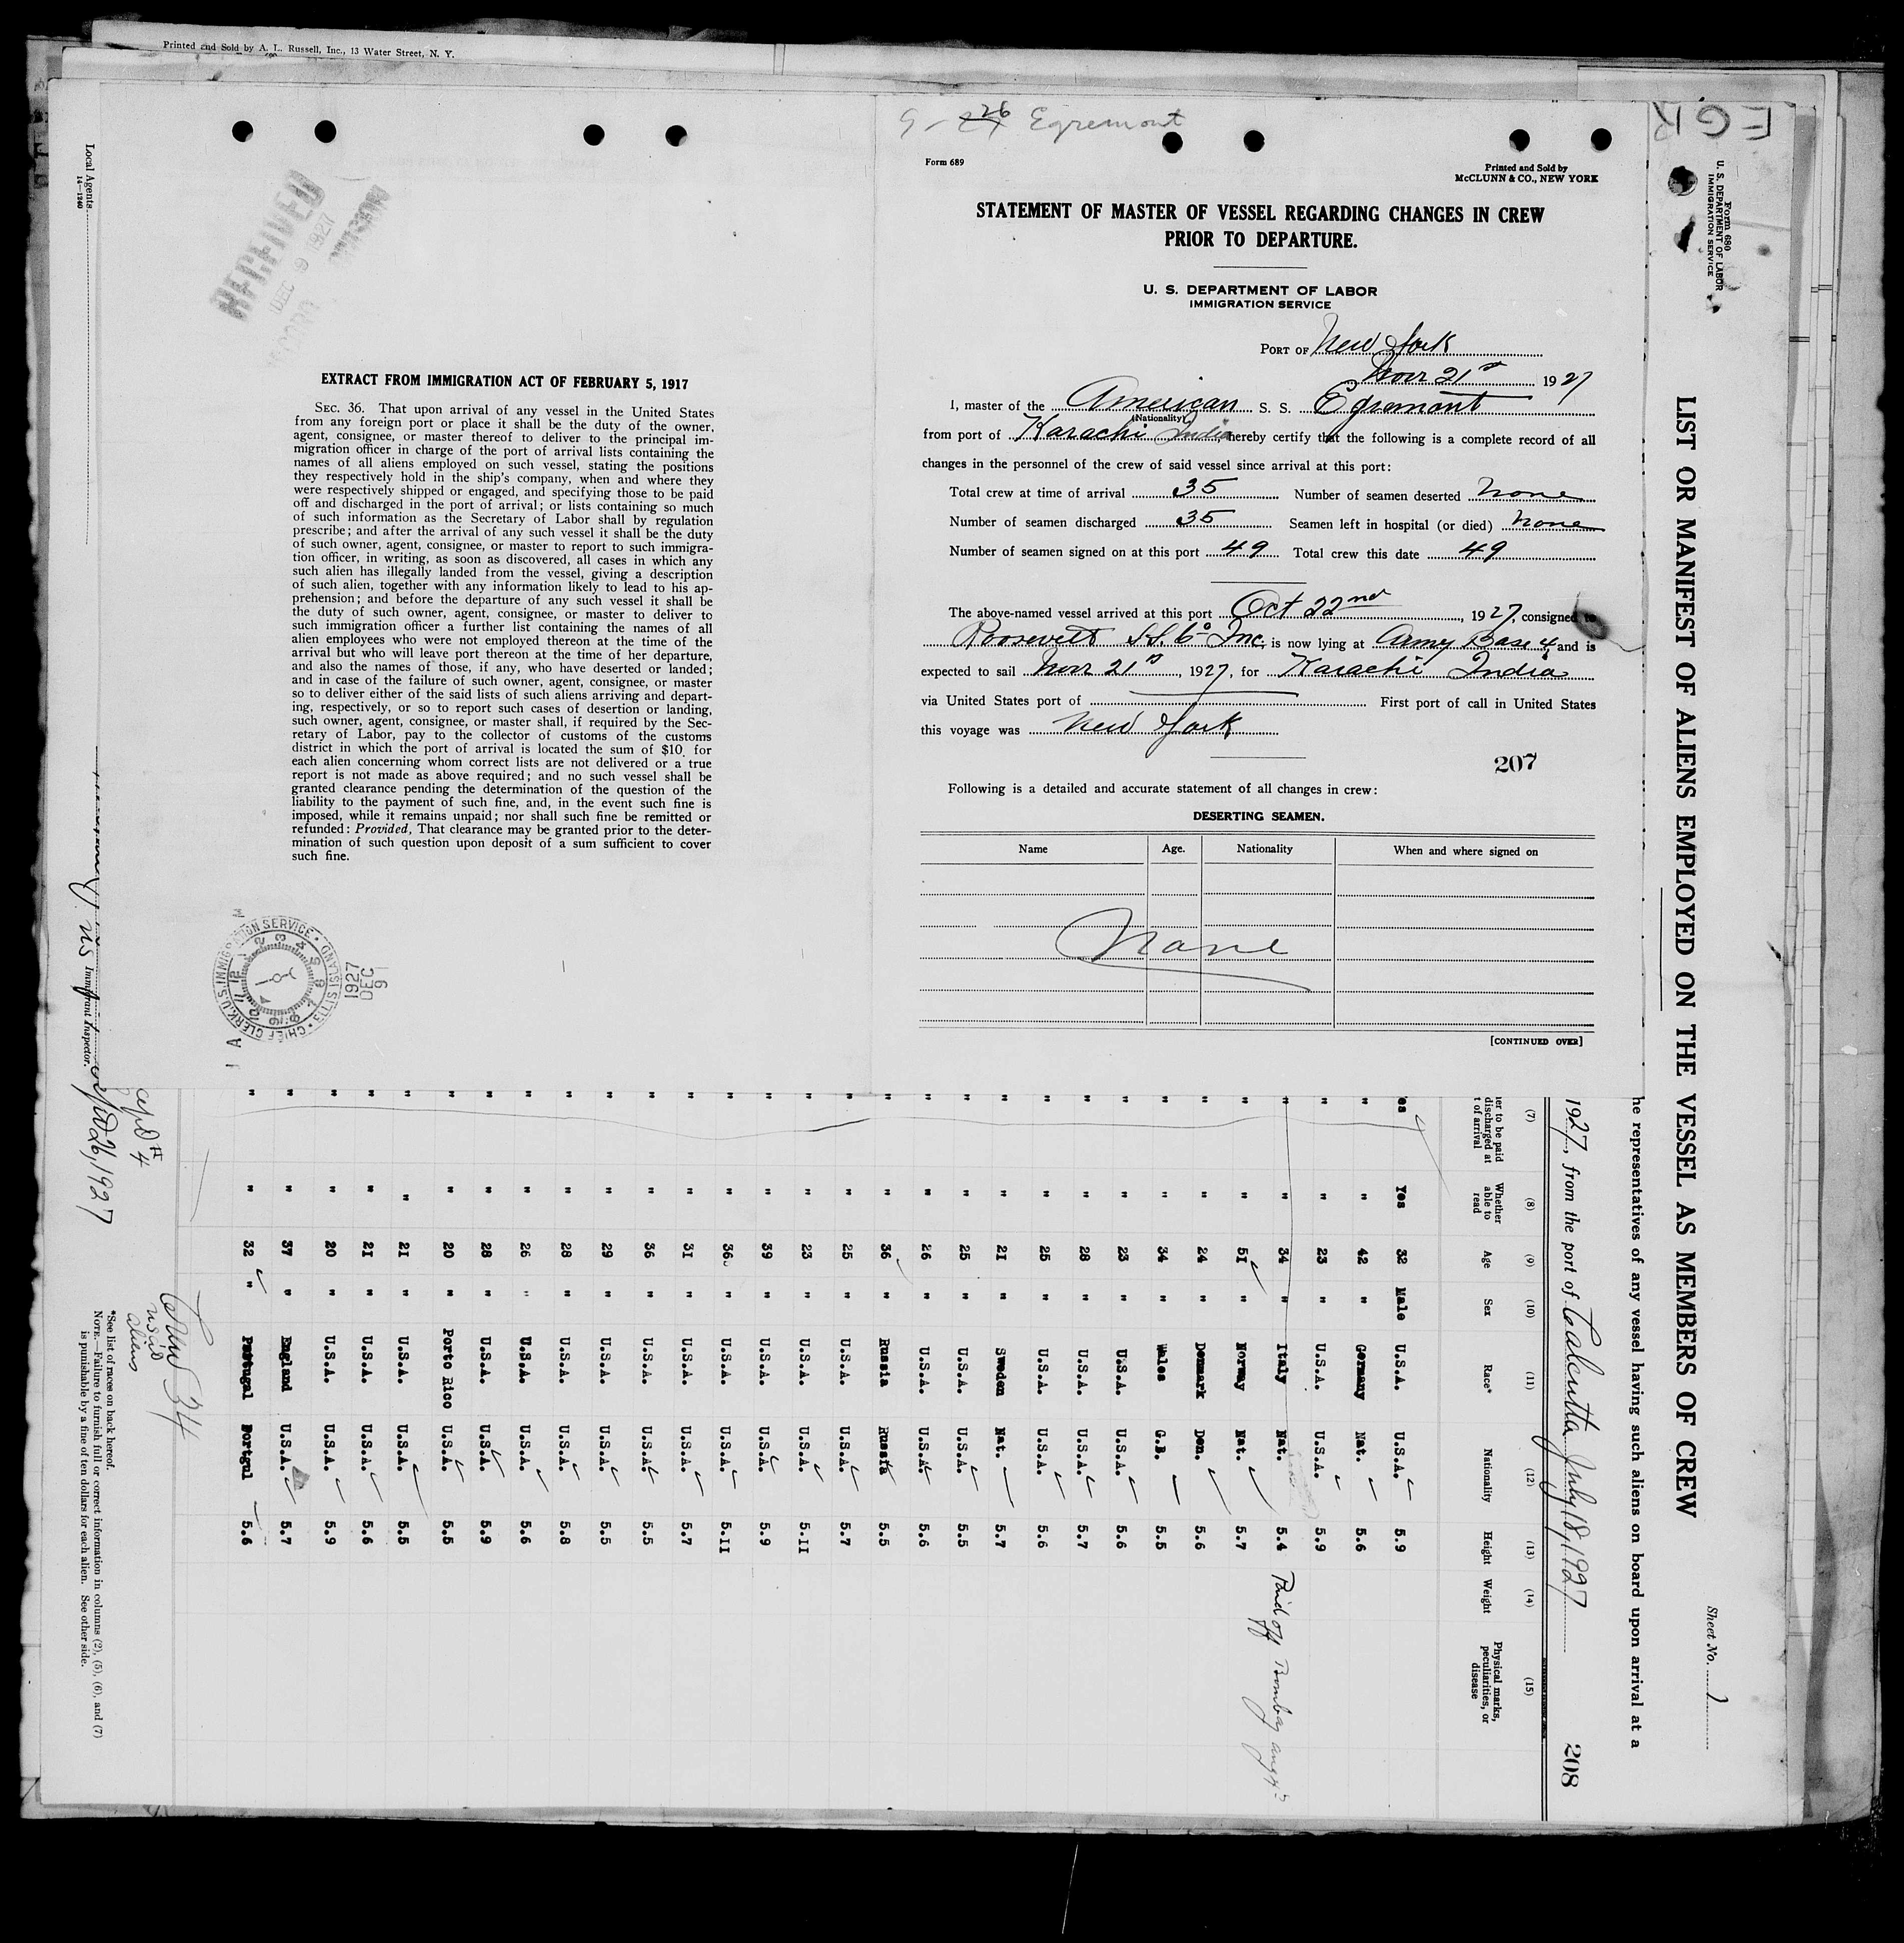 Printed and Sold by A. L. Russell, Inc., 13 Water Street, N. Y.
Local Agents
14—1240
RECEIVED
DEC 9 1927
EXTRACT FROM IMMIGRATION ACT OF FEBRUARY 5, 1917
SEC. 36. That upon arrival of any vessel in the United States
from any foreign port or place it shall be the duty of the owner,
agent, consignee, or master thereof to deliver to the principal im-
migration officer in charge of the port of arrival lists containing the
names of all aliens employed on such vessel, stating the positions
they respectively hold in the ship's company, when and where they
were respectively shipped or engaged, and specifying those to be paid
off and discharged in the port of arrival; or lists containing so much
of such information as the Secretary of Labor shall by regulation
prescribe; and after the arrival of any such vessel it shall be the duty
of such owner, agent, consignee, or master to report to such immigra-
tion officer, in writing, as soon as discovered, all cases in which any
such alien has illegally landed from the vessel, giving a description
of such alien, together with any information likely to lead to his ap-
prehension; and before the departure of any such vessel it shall be
the duty of such owner, agent, consignee, or master to deliver to
such immigration officer a further list containing the names of all
alien employees who were not employed thereon at the time of the
arrival but who will leave port thereon at the time of her departure,
and also the names of those, if any, who have deserted or landed;
and in case of the failure of such owner, agent, consignee, or master
so to deliver either of the said lists of such aliens arriving and depart-
ing, respectively, or so to report such cases of desertion or landing,
such owner, agent, consignee, or master shall, if required by the Sec-
retary of Labor, pay to the collector of customs of the customs
district in which the port of arrival is located the sum of $10 for
each alien concerning whom correct lists are not delivered or a true
report is not made as above required; and no such vessel shall be
granted clearance pending the determination of the question of the
liability to the payment of such fine, and, in the event such fine is
imposed, while it remains unpaid; nor shall such fine be remitted or
refunded: Provided, That clearance may be granted prior to the deter-
mination of such question upon deposit of a sum sufficient to cover
such fine.
CHIEF CLERK U.S. IMMIGRATION SERVICE • ELLIS ISLAND
1927
DEC
9
Immigrant Inspector.
Egremont
Form 689
Printed and Sold by
McCLUNN & CO., NEW YORK
STATEMENT OF MASTER OF VESSEL REGARDING CHANGES IN CREW
PRIOR TO DEPARTURE.
U. S. DEPARTMENT OF LABOR
IMMIGRATION SERVICE
PORT OF New York
Novr 21st 1927
I, master of the American S. S. Egremont
(Nationality)
from port of Karachi India hereby certify that the following is a complete record of all
changes in the personnel of the crew of said vessel since arrival at this port:
Total crew at time of arrival 35 Number of seamen deserted None
Number of seamen discharged 35 Seamen left in hospital (or died) None
Number of seamen signed on at this port 49 Total crew this date 49
The above-named vessel arrived at this port Oct 22nd, 1927, consigned to
Roosevelt S.S. Co Inc. is now lying at Army Base 4 and is
expected to sail Novr 21st, 1927, for Karachi India
via United States port of First port of call in United States
this voyage was New York
207
Following is a detailed and accurate statement of all changes in crew:
DESERTING SEAMEN.
Name Age. Nationality When and where signed on
None
[CONTINUED OVER]
EGR
Form 680
U. S. DEPARTMENT OF LABOR
IMMIGRATION SERVICE
Sheet No. 1
LIST OR MANIFEST OF ALIENS EMPLOYED ON THE VESSEL AS MEMBERS OF CREW
he representatives of any vessel having such aliens on board upon arrival at a
1927, from the port of Calcutta July 18, 1927
208
(7) (8) (9) (10) (11) (12) (13) (14) (15)
er to be paid discharged at t of arrival Whether able to read Age Sex Race* Nationality Height Weight Physical marks, peculiarities, or disease
es Yes 32 Male U.S.A. U.S.A. 5.9
" " 42 " Germany Nat. 5.6
" " 23 " U.S.A. U.S.A. 5.9
" " 34 " Italy Nat. 5.4 Paid off Bombay
" " 51 " Norway Nat. 5.7
" " 24 " Denmark Den. 5.6
" " 34 " Wales G.B. 5.5
" " 23 " U.S.A. U.S.A. 5.6
" " 28 " U.S.A. U.S.A. 5.7
" " 25 " U.S.A. U.S.A. 5.6
" " 21 " Sweden Nat. 5.7
" " 25 " U.S.A. U.S.A. 5.5
" " 26 " U.S.A. U.S.A. 5.6
" " 36 " Russia Russia 5.5
" " 25 " U.S.A. U.S.A. 5.7
" " 23 " U.S.A. U.S.A. 5.11
" " 39 " U.S.A. U.S.A. 5.9
" " 36 " U.S.A. U.S.A. 5.11
" " 31 " U.S.A. U.S.A. 5.7
" " 36 " U.S.A. U.S.A. 5.5
" " 29 " U.S.A. U.S.A. 5.5
" " 28 " U.S.A. U.S.A. 5.8
" " 26 " U.S.A. U.S.A. 5.6
" " 28 " U.S.A. U.S.A. 5.9
" " 20 " Porto Rico U.S.A. 5.5
" " 21 " U.S.A. U.S.A. 5.5
" " 21 " U.S.A. U.S.A. 5.6
" " 20 " U.S.A. U.S.A. 5.9
" " 37 " England U.S.A. 5.7
" " 32 " Portugal Portgul 5.6
aliens
*See list of races on back hereof.
NOTE.—Failure to furnish full or correct information in columns (2), (5), (6), and (7)
is punishable by a fine of ten dollars for each alien. See other side.